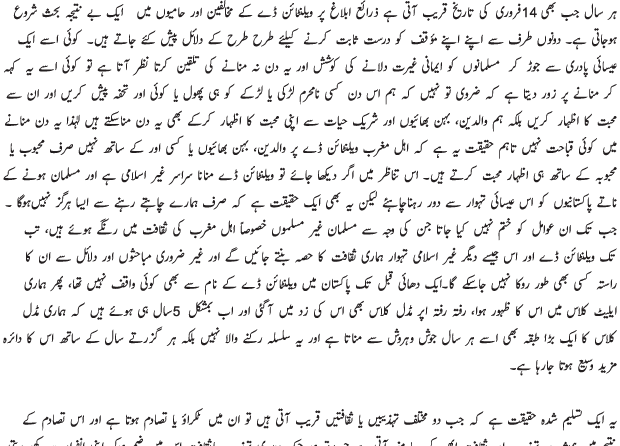 ہر سال جب بھی 14فروری کی تاریخ قریب آتی ہے ذرائع ابلاغ پر ویلنٹائن ڈے کے مخالفین اور حامیوں میں ایک بے نتیجہ بحث شروع
ہوجاتی ہے۔ دونوں طرف سے اپنے اپنے مؤقف کو درست ثابت کرنے کیلئے طرح طرح کے دلائل پیش کئے جاتے ہیں۔ کوئی اسے ایک
عیسائی پادری سے جوڑ کر مسلمانوں کو ایمانی غیرت دلانے کی کوشش اور یہ دن نہ منانے کی تلقین کرتا نظر آتا ہے تو کوئی اسے یہ کہہ
کر منانے پر زور دیتا ہے کہ ضروی تو نہیں کہ ہم اس دن کسی نامحرم لڑکی یا لڑکے کو ہی پھول یا کوئی اور تحفہ پیش کریں اور ان سے
محبت کا اظہار کریں بلکہ ہم والدین، بہن بھائیوں اور شریک حیات سے اپنی محبت کا اظہار کرکے بھی یہ دن مناسکتے ہیں لہٰذا یہ دن منانے
میں کوئی قباحت نہیں تاہم حقیقت یہ ہے کہ اہل مغرب ویلنٹائن ڈے پر والدین، بہن بھائیوں یا کسی اور کے ساتھ نہیں صرف محبوب یا
محبوبہ کے ساتھ ہی اظہار محبت کرتے ہیں۔ اس تناظر میں اگر دیکھا جائے تو ویلنٹائن ڈے منانا سراسر غیر اسلامی ہے اور مسلمان ہونے کے
ناتے پاکستانیوں کو اس عیسائی تہوار سے دور رہناچاہئے لیکن یہ بھی ایک حقیقت ہے کہ صرف ہمارے چاہتے رہنے سے ایسا ہرگز نہیں ہوگا۔
جب تک ان عوامل کو ختم نہیں کیا جاتا جن کی وجہ سے مسلمان غیر مسلموں خصوصاً اہل مغرب کی ثقافت میں رنگے ہوئے ہیں، تب
تک ویلنٹائن ڈے اور اس جیسے دیگر غیر اسلامی تہوار ہماری ثقافت کا حصہ بنتے جائیں گے اور غیر ضروری مباحثوں اور دلائل سے ان کا
راستہ کسی بھی طور روکا نہیں جاسکے گا۔ایک دھائی قبل تک پاکستان میں ویلنٹائن ڈے کے نام سے بھی کوئی واقف نہیں تھا، پھر ہماری
ایلیٹ کلاس میں اس کا ظہور ہوا، رفتہ رفتہ اپر مڈل کلاس بھی اس کی زد میں آگئی اور اب بمشکل 5سال ہی ہوئے ہیں کہ ہماری مڈل
کلاس کا ایک بڑا طبقہ بھی اسے ہر سال جوش وخروش سے مناتا ہے اور یہ سلسلہ رکنے والا نہیں بلکہ ہر گزرتے سال کے ساتھ اس کا دائرہ
مزید وسیع ہوتا جارہا ہے۔
یہ ایک تسلیم شدہ حقیقت ہے کہ جب دو مختلف تہذیبیں یا ثقافتیں قریب آتی ہیں تو ان میں ٹکراؤ یا تصادم ہوتا ہے اور اس تصادم کے